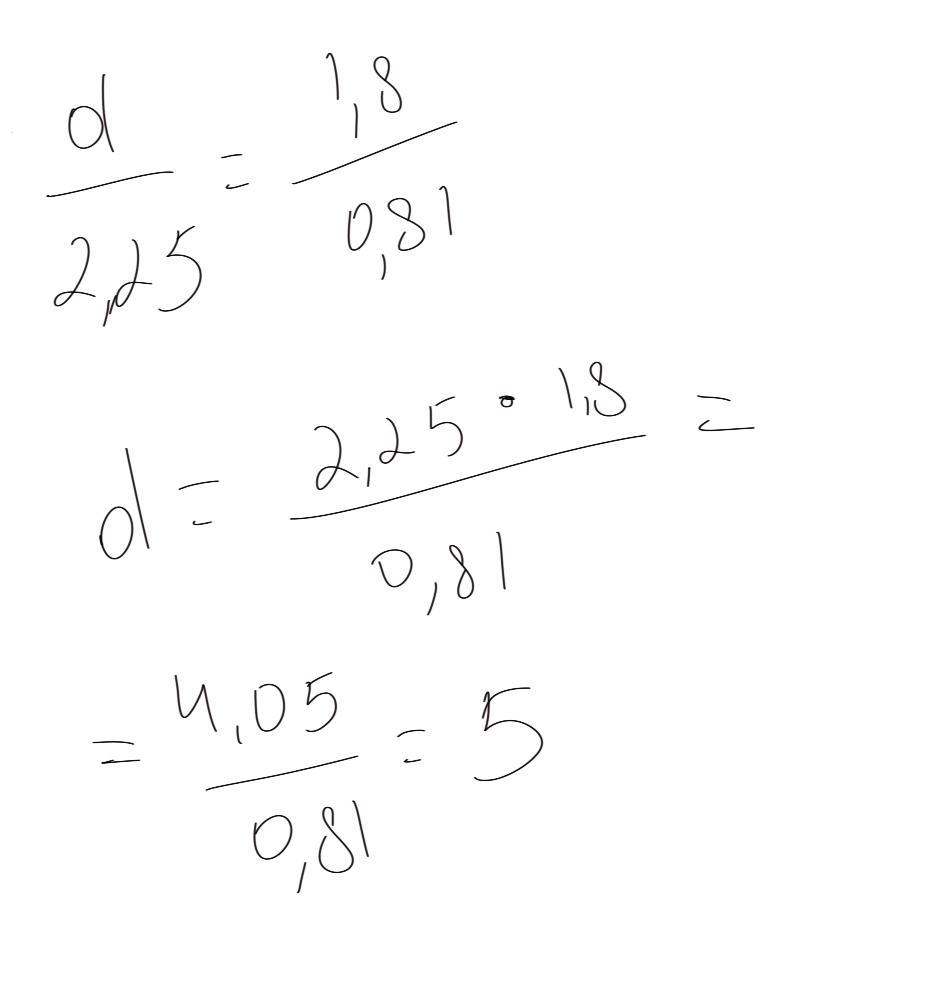 d/2,25 = 1,8/0,81
d = 2,25 · 1,8/0,81 =
= 4,05/0,81 = 5